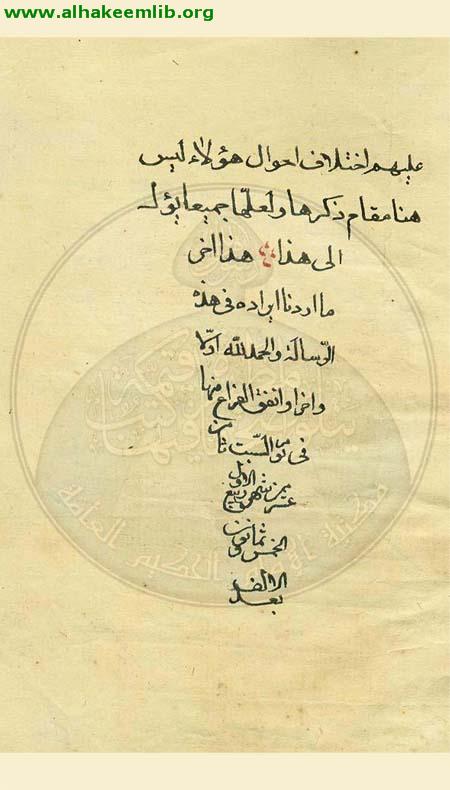 www.alhakeemlib.org
عليهم اختلاف احوال هؤلاء ليس
هنا مقام ذكرها ولعلها جميعا يؤل
الى هذا هذا اخر
ما اردنا ايراده فى هذه
الرّسالة والحمد لله اوّلا
واخرا واتفق الفراغ منها
فى يوم السّبت ثامن
عشر من شهر ربيع الاول
ثمان
الالف
بعد